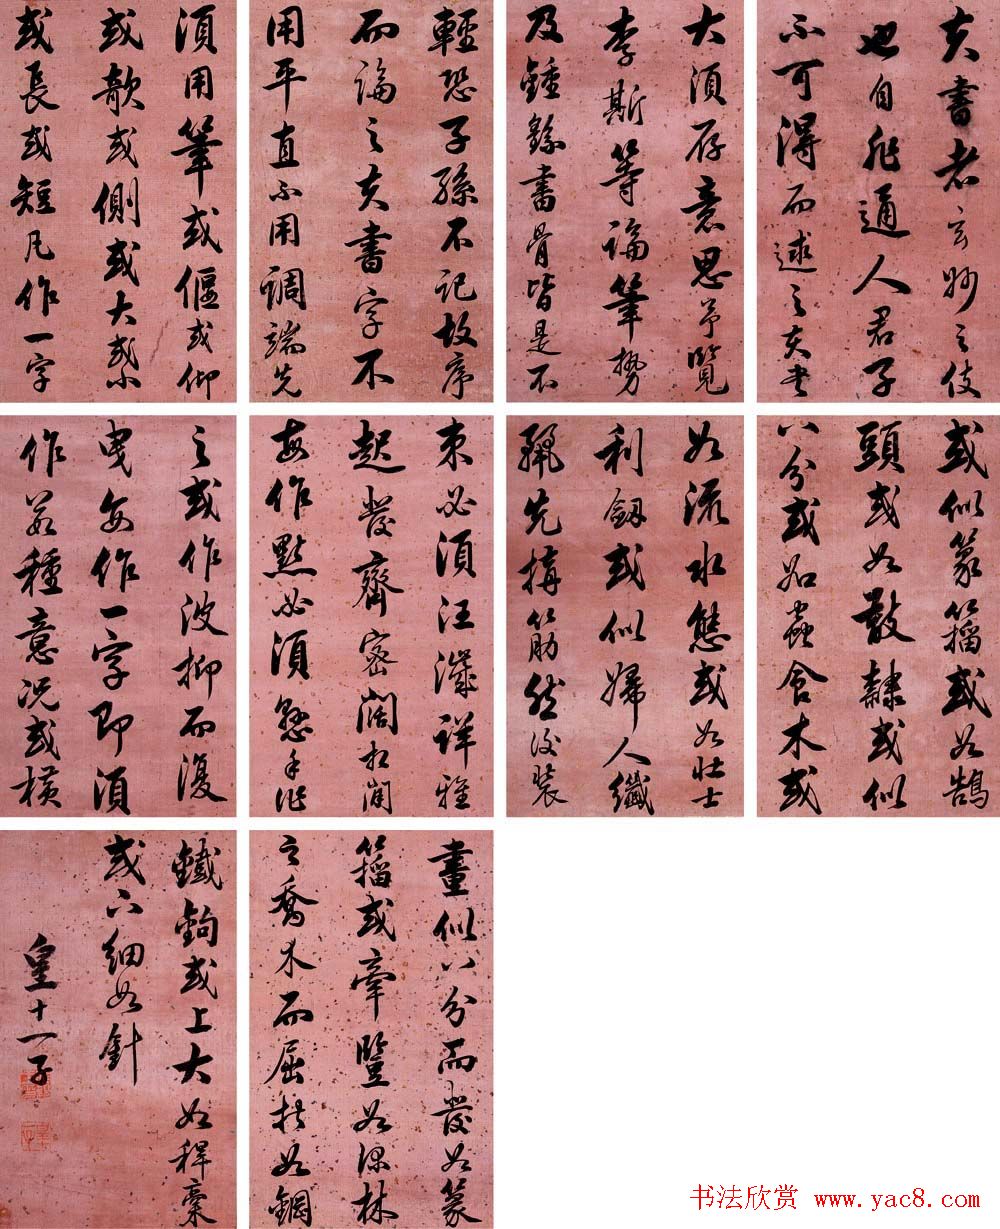 夫書者玄妙之伎
也自非通人君子
不可得而述之夫書
大須存意思予覽
李斯等論筆勢
及鍾繇書骨皆是不
輕恐子孫不記故序
而論之夫書字不
用平直不用調端先
須用筆或偃或仰
或欹或側或大或小
或長或短凡作一字
或似篆籀或如鵠
頭或如散隸或似
八分或如蟲食木或
如流水態或如壯士
利劔或似婦人纖
麗先搆筋然後裝
束必須注深詳雅
起發齊密闊相間
每作點必須懸手作
之或作波抑而復
曳每作一字即須
作數種意況或橫
畫似八分而發如篆
籀或牽豎如深林
之喬木而屈折如鋼
鐵鉤或上大如稈稾
或下細如針
皇十一子
书法欣赏 www.yac8.com